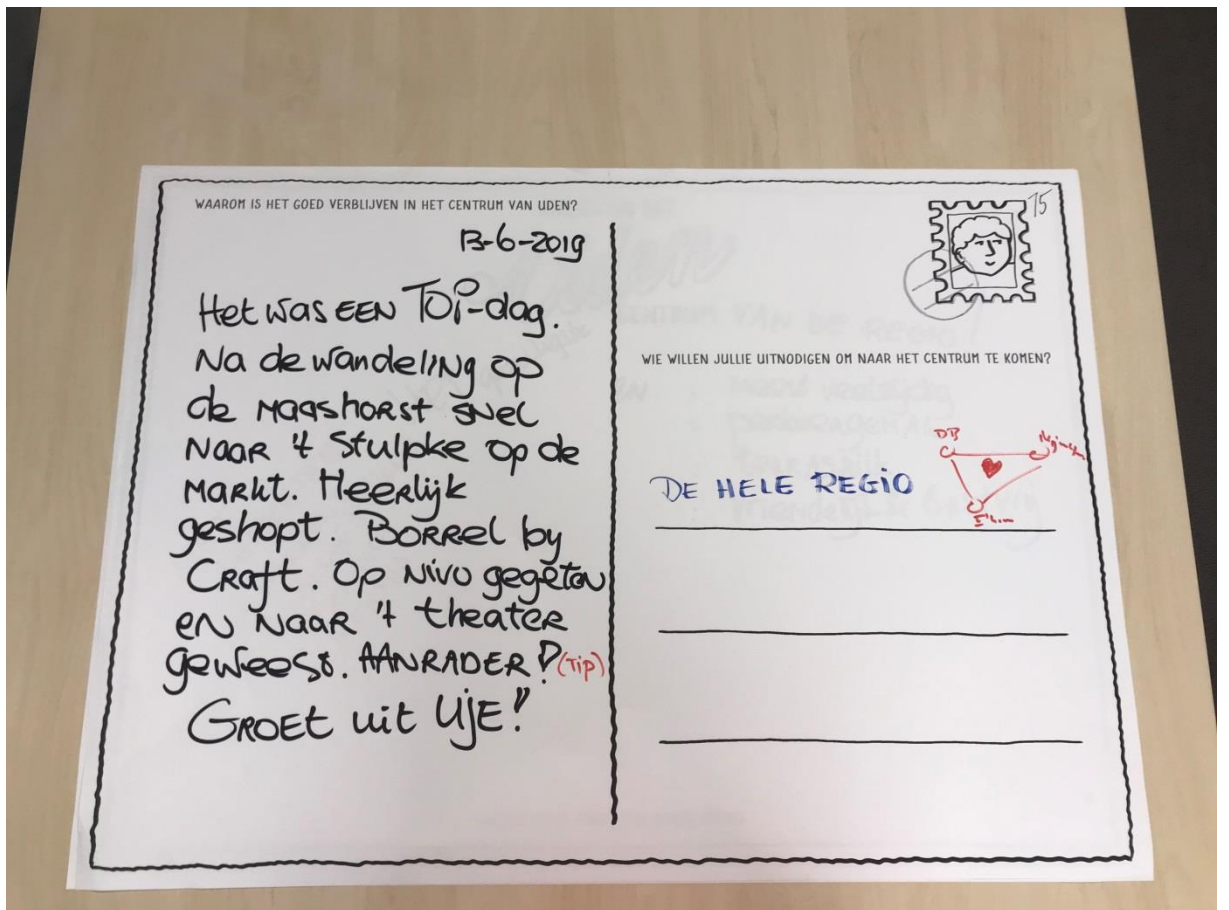 WAAROM IS HET GOED VERBLIJVEN IN HET CENTRUM VAN UDEN?
13-6-2019
Het was EEN TOP-dag.
Na de wandeling op
de Maashorst snel
Naar 't Stulpke op de
Markt. Heerlijk
geshopt. Borrel by
Craft. Op Nivo gegeten
en Naar 't theater
geweest. AANRADER! (Tip)
GROET uit UjE!!
15
WIE WILLEN JULLIE UITNODIGEN OM NAAR HET CENTRUM TE KOMEN?
DB
DE HELE REGIO